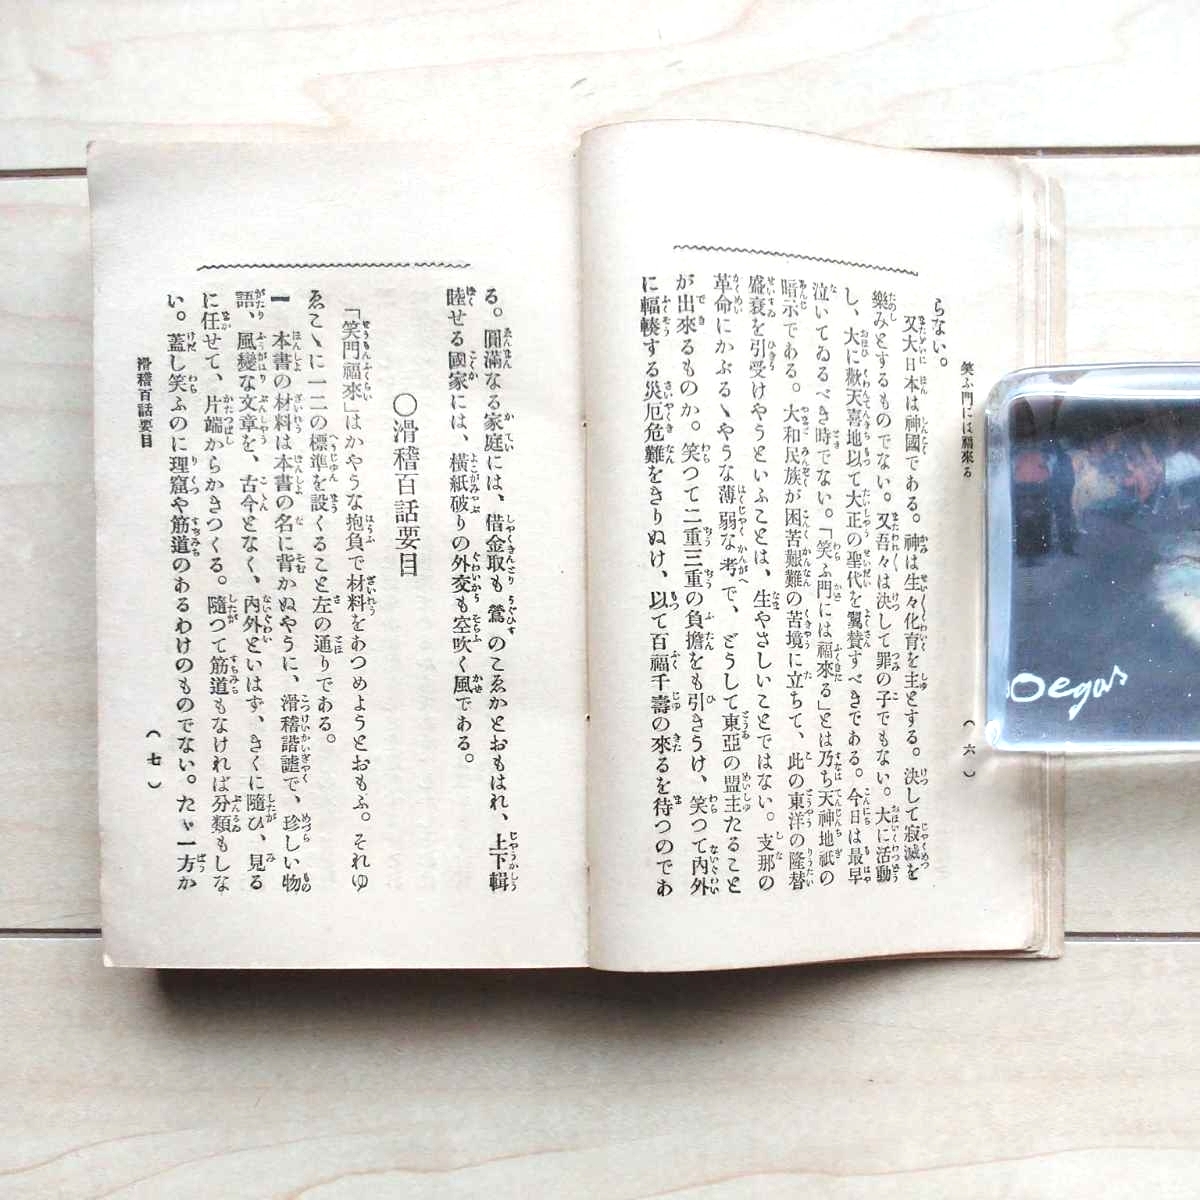 笑ふ門には福來る
らない。
又大日本は神國である。神は生々化育を主とする。決して寂滅を
樂みとするものでない。又吾々は決して罪の子でもない。大に活動
し、大に歡天喜地以て大正の聖代を翼賛すべきである。今日は最早
泣いてゐるべき時でない。「笑ふ門には福來る」とは乃ち天神地祇の
暗示である。大和民族が困苦艱難の苦境に立ちて、此の東洋の隆替
盛衰を引受けやうといふことは、生やさしいことではない。支那の
革命にかぶるゝやうな薄弱な考で、どうして東亞の盟主たること
が出來るものか。笑つて二重三重の負擔をも引きうけ、笑つて內外
に輻輳する災厄危難をきりぬけ、以て百福千壽の來るを待つのであ
(六)
る。圓滿なる家庭には、借金取も鶯のこゑかとおもはれ、上下輯
睦せる國家には、橫紙破りの外交も空吹く風である。
〇滑稽百話要目
「笑門福來」はかやうな抱負で材料をあつめようとおもふ。それゆ
ゑこゝに一二の標準を設くること左の通りである。
一 本書の材料は本書の名に背かぬやうに、滑稽諧謔で、珍しい物
語、風變な文章を、古今となく、內外といはず、きくに隨ひ、見る
に任せて、片端からかきつくる。隨つて筋道もなければ分類もしな
い。蓋し笑ふのに理窟や筋道のあるわけのものでない。たゞ一方か
滑稽百話要目
(七)
Degas